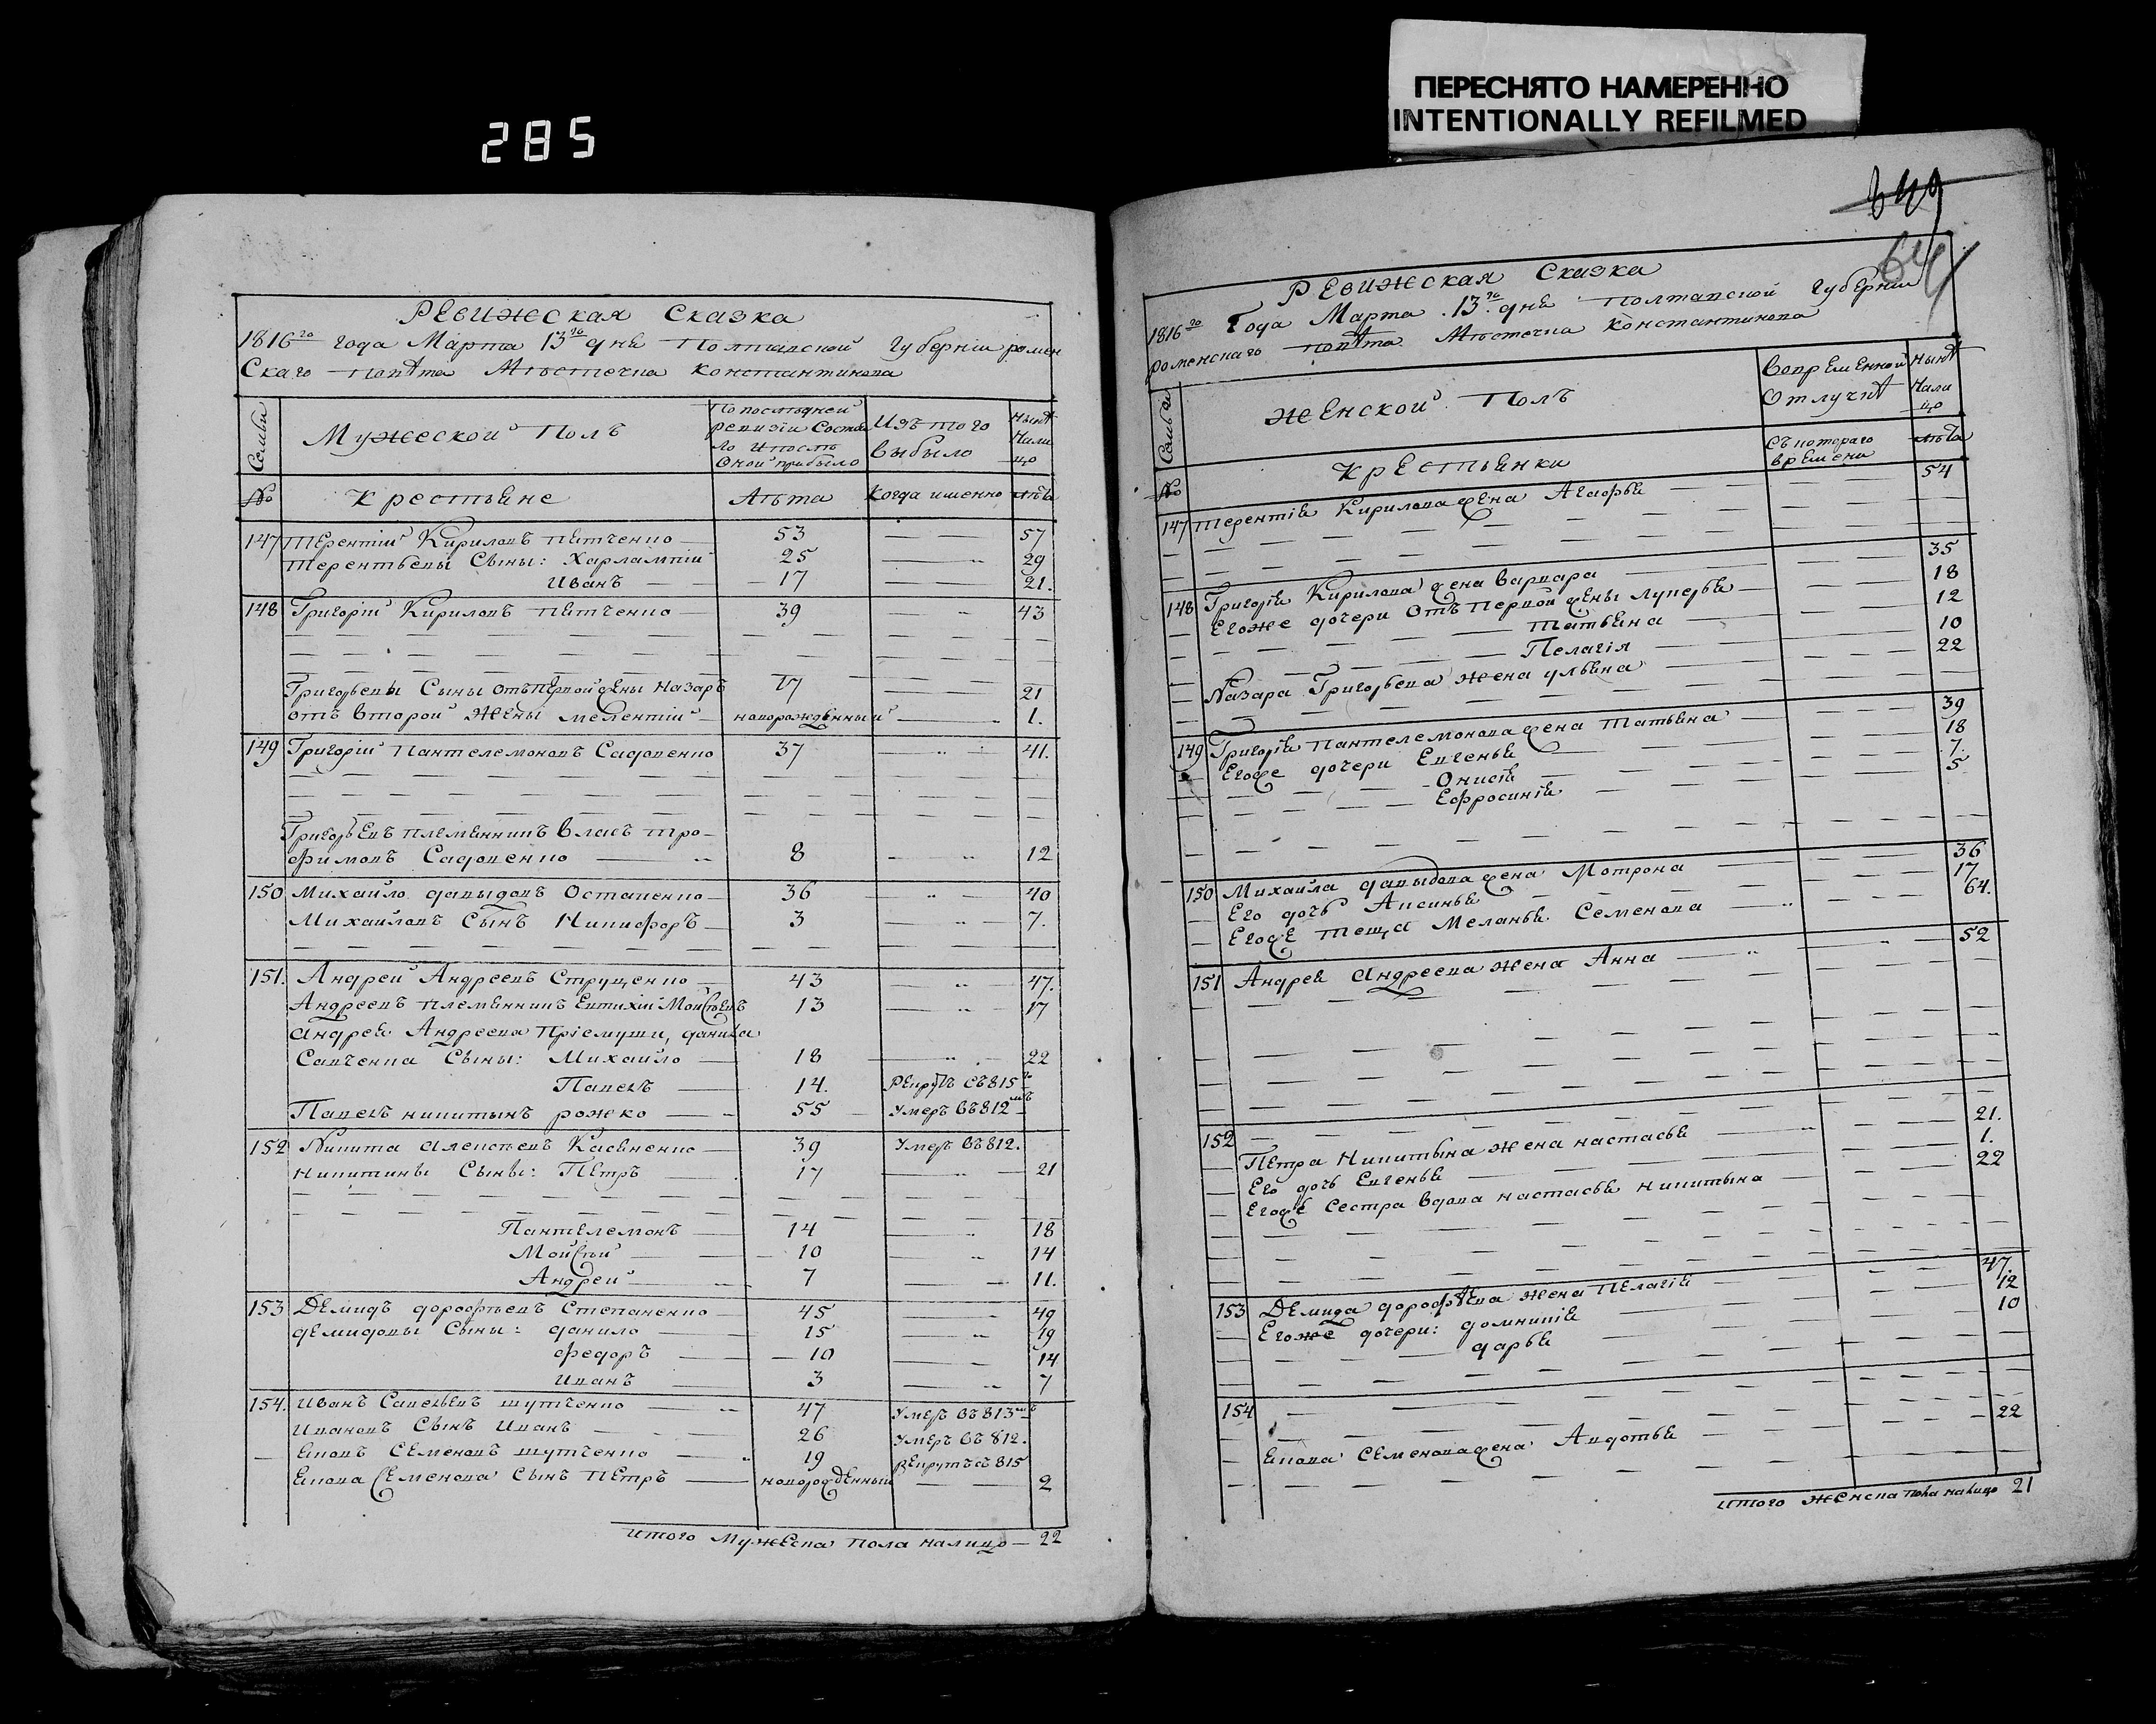 285
ПЕРЕСНЯТО НАМЕРЕННО
INTENTIONALLY REFILMED
649
Ревижская Сказка
1816го года Марта 13го дня Полтавской Губерніи ромен
Скаго повѣта Мѣстечка Константинова
Семьи
Мужеской Полъ
По последней ревизіи Состояло и послѣ Оной прибыло
Изъ того выбыло
Нынѣ Налицо
№
Крестьяне
Лѣта
Когда именно
лѣта
147 Терентій Кириловъ Пятченко 53 57
Терентьевы Сыны: Харлампій 25 29
Иванъ 17 21.
148 Григорій Кириловъ Пятченко 39 43
Григорьевы Сыны отъ первой жены Назаръ 17 21
отъ второй жены Мелентій новорожденный 1.
149 Григорій Пантелемоновъ Садовенко 37 41.
Григорьевъ племянникъ Власъ Тро-
фимовъ Садовенко 8 12
150 Михайло давыдовъ Остапенко 36 40
Михайловъ Сынъ Никифоръ 3 7.
151. Андрей Андреевъ Струценко 43 47.
Андреевъ племянникъ Евтихій Мойсѣевъ 13 17
Андрея Андреева Пріемыши, данила
Савченка Сыны: Михайло 18 22
Павелъ 14. Рекрутъ въ 815го
Павелъ никитынъ рожко 55 Умеръ въ 812мъ
152 Никита Алексѣевъ Касяненко 39 Умеръ въ 812.
Никитины Сыны: Петръ 17 21
Пантелемонъ 14 18
Мойсѣй 10 14
Андрей 7 11.
153 Демидъ дорофѣевъ Степаненко 45 49
демидовы Сыны: данило 15 19
федоръ 10 14
Иванъ 3 7
154. Иванъ Савельевъ шутченко 47 Умеръ въ 813мъ
Ивановъ Сынъ Иванъ 26 Умеръ въ 812.
Яковъ Семеновъ шутченко 19 Рекрутъ въ 815
Якова Семенова Сынъ Петръ новорожденный 2
Итого Мужеска пола налицо 22
Ревижская Сказка
1816го Года Марта 13го дня Полтавской Губерніи
роменскаго повѣта Мѣстечка Константинова
Семьи
Женской Полъ
Вовременной Отлучкѣ
Нынѣ Налицо
№
Крестьянки
Съ котораго времени
лѣта
147 Терентія Кирилова жена Агафья 54
148 Григорія Кирилова жена варвара 35
Егоже дочери Отъ первой жены Лукерья 18
Татьяна 12
Пелагія 10
Назара Григорьева жена ульяна 22
149 Григорія Пантелемонова жена Татьяна 39
Егоже дочери Евгенья 18
Онисія 7.
Ефросинія 5
150 Михайла давыдова жена Мотрона 36
Его дочь Аксинья 17
Егоже теща Меланья Семенова 64.
151 Андрея Андреева жена Анна 52
152
Петра Никитына жена настасья 21.
Его дочь Евгенья 1.
Егоже Сестра вдова настасья никитына 22
153 Демида дорофѣева жена Пелагія 47.
Егоже дочери: домникія 12
дарья 10
154
Якова Семенова жена Авдотья 22
Итого женска пола налицо 21